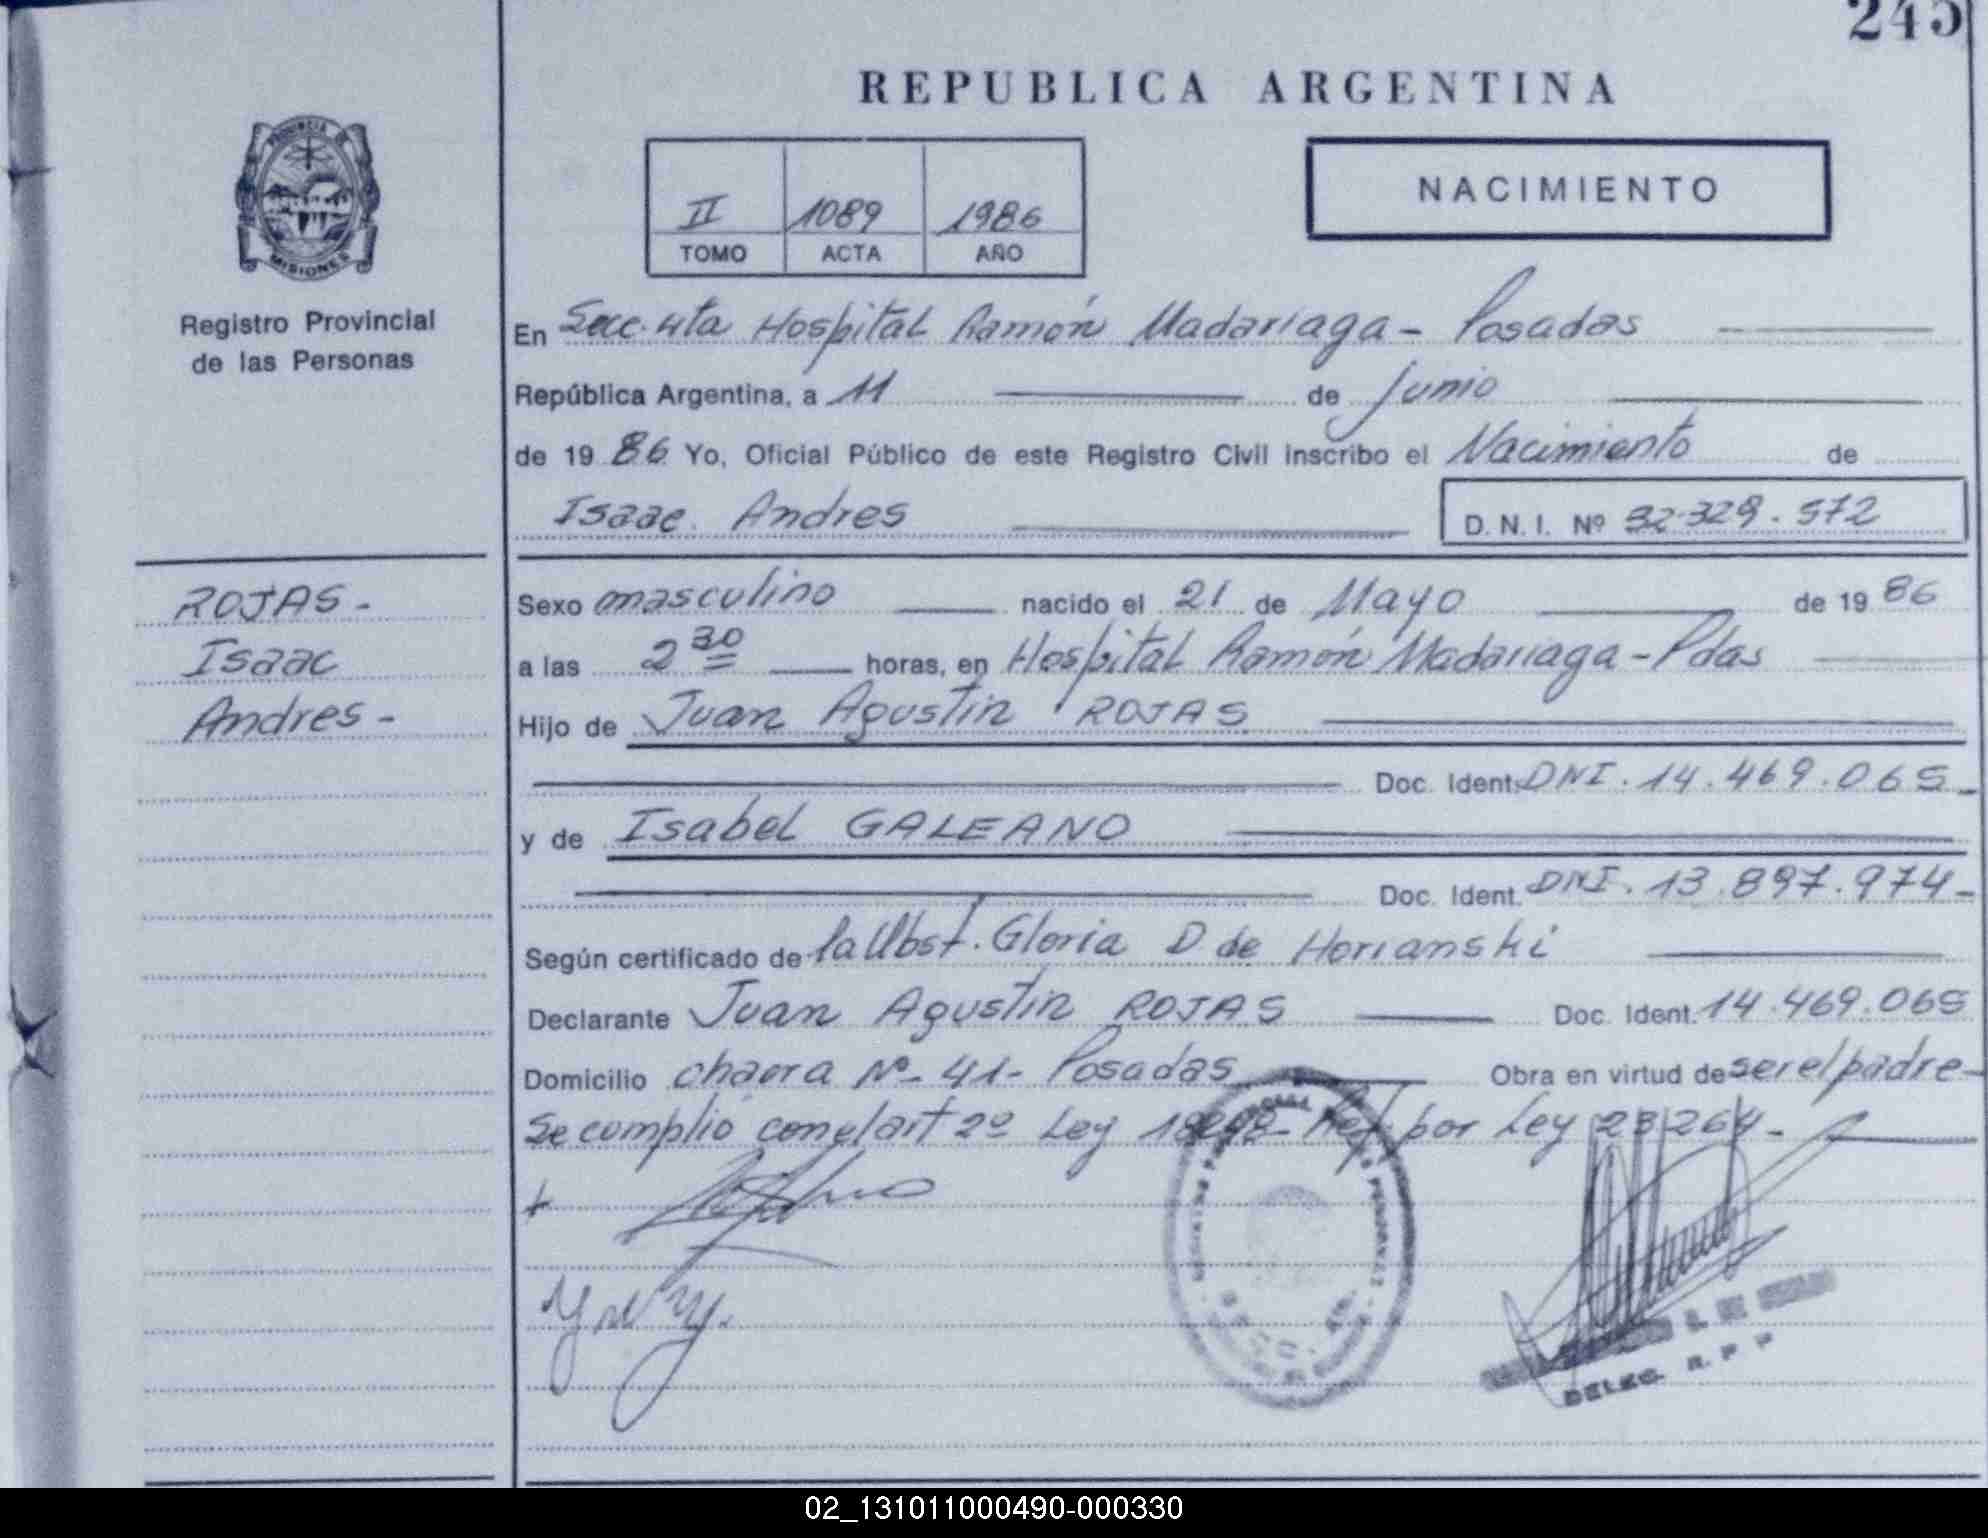 245
REPUBLICA ARGENTINA
PROVINCIA DE
MISIONES
Registro Provincial
de las Personas
II 1089 1986
TOMO ACTA AÑO
NACIMIENTO
En Secc. 4ta Hospital Ramón Madariaga - Posadas
República Argentina, a 11 de junio
de 1986 Yo, Oficial Público de este Registro Civil inscribo el Nacimiento de
Isaac Andres D. N. I. Nº 32.329.572
ROJAS -
Isaac
Andres -
Sexo masculino nacido el 21 de Mayo de 1986
a las 2 30 horas, en Hospital Ramón Madariaga - Pdas
Hijo de Juan Agustin ROJAS
Doc. Ident. DNI. 14.469.065 -
y de Isabel GALEANO
Doc. Ident. DNI. 13.897.974 -
Según certificado de la Obst. Gloria D de Horianski
Declarante Juan Agustin ROJAS Doc. Ident. 14.469.065
Domicilio chacra Nº 41 - Posadas Obra en virtud de ser el padre -
Se cumplió con el art 2º Ley 18248 - Ref. por Ley 23264 -
DELEG. R. P. P
02_131011000490-000330